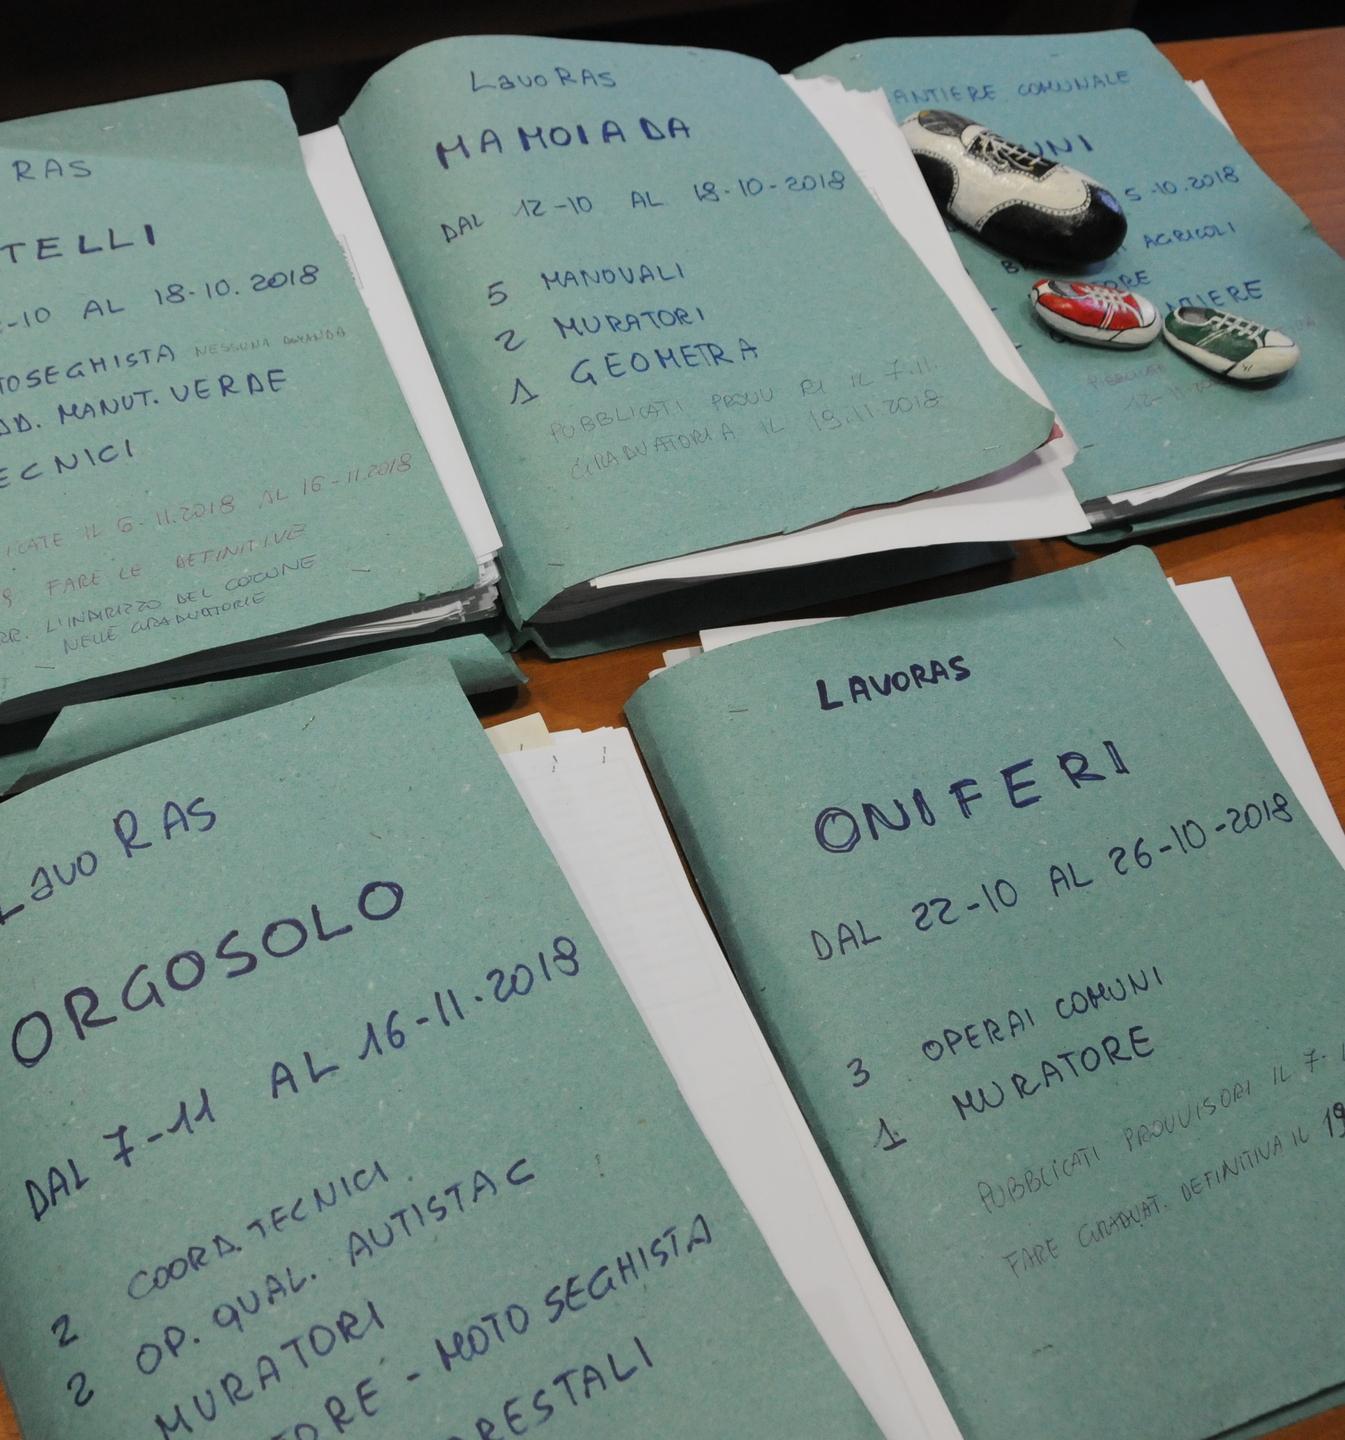 RAS
TELLI
-10 AL 18-10.2018
TOSEGHISTA NESSUNA DOMANDA
DD. MANUT. VERDE
ECNICI
ICATE IL 6-11.2018 AL 16-11.2018
9 FARE LE DEFINITIVE
RR. L'INDIRIZZO DEL COMUNE
NELLE GRADUATORIE
LavoRAS
MAMOIADA
DAL 12-10 AL 18-10-2018
5 MANOVALI
2 MURATORI
1 GEOMETRA
PUBBLICATI PROVV RI IL 7.11.
GRADUATORIA IL 19.11.2018
ANTIERE COMUNALE
UNI
5-10.2018
AGRICOLI
ORE
NTIERE
LavoRAS
ORGOSOLO
DAL 7-11 AL 16-11-2018
2 COORD. TECNICI
2 OP. QUAL. AUTISTA C
MURATORI
TORE - MOTOSEGHISTA
RESTALI
LAVORAS
ONIFERI
DAL 22-10 AL 26-10-2018
3 OPERAI COMUNI
1 MURATORE
PUBBLICATI PROVVISORI IL 7-
FARE GRADUAT. DEFINITIVA IL 19